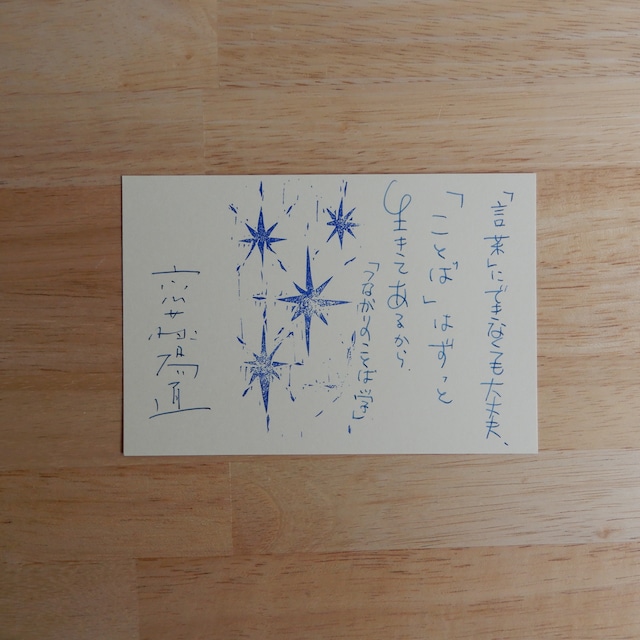 「言葉」にできなくても大丈夫、
「ことば」はずっと
生きてあるから。
『つながりのことば学』
齋藤陽道